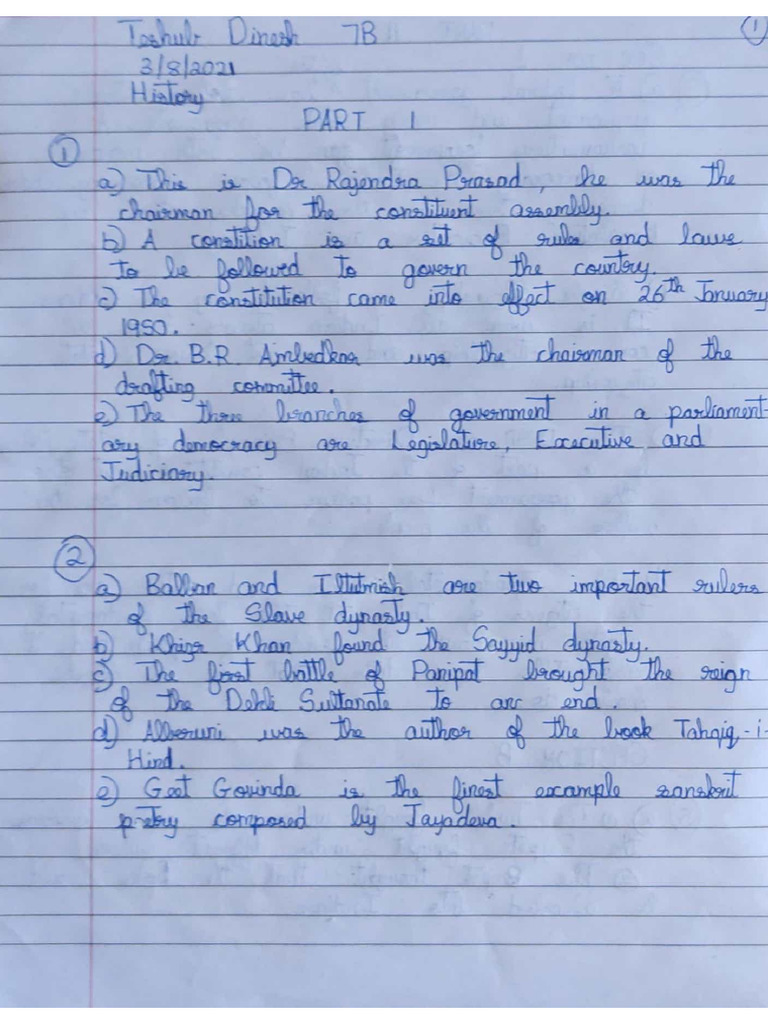 Teshub Dinesh 7B 1
3/8/2021
History
PART 1
1
a) This is Dr Rajendra Prasad, he was the
chairman for the constituent assembly.
b) A constition is a set of rules and laws
to be followed to govern the country.
c) The constitution came into effect on 26th January
1950.
d) Dr. B.R. Ambedkar was the chairman of the
drafting committee.
e) The three branches of government in a parliament-
ary democracy are Legislature, Executive and
Judiciary.
2
a) Balban and Iltutmish are two important rulers
of the Slave dynasty.
b) Khizr Khan found the Sayyid dynasty.
c) The first battle of Panipat brought the reign
of the Dehli Sultanate to an end.
d) Alberuni was the author of the book Tahqiq-i-
Hind.
e) Geet Govinda is the finest example sanskrit
poetry composed by Jayadeva.